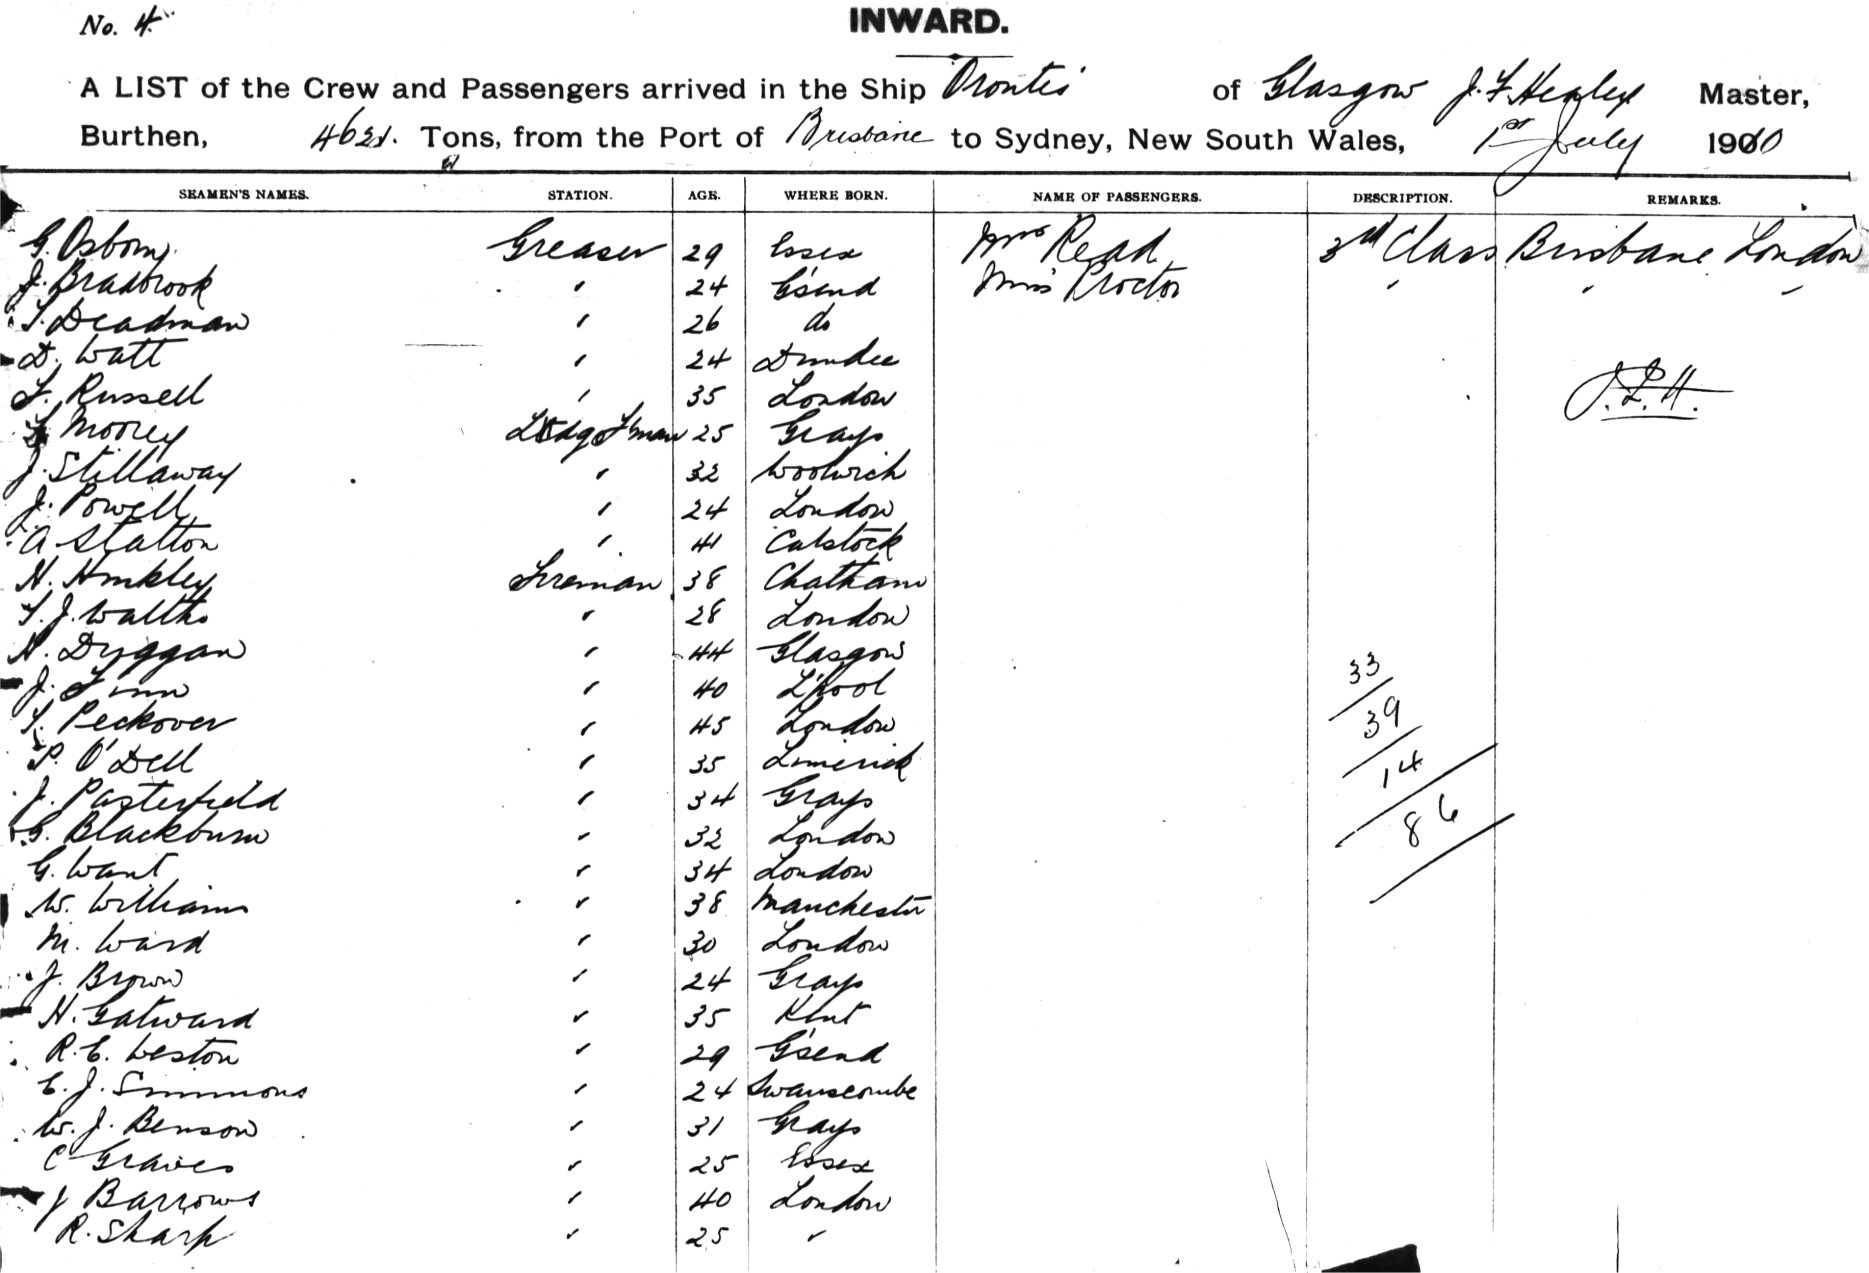 No. 4.
INWARD.
A LIST of the Crew and Passengers arrived in the Ship Orontes of Glasgow J. F. Healey Master,
Burthen, 4621. Tons, from the Port of Brisbane to Sydney, New South Wales, 1st July 1910
SEAMEN'S NAMES. STATION. AGE. WHERE BORN. NAME OF PASSENGERS. DESCRIPTION. REMARKS.
G. Osborn Greaser 29 Essex Mrs Read 3rd Class Brisbane London
J. Bradbrook " 24 G'send Miss Proctor " " "
T. Deadman " 26 do
D. Watt " 24 Dundee
F. Russell " 35 London
J.F.H.
Moorey Ldg F'man 25 Grays
J. Stillaway " 32 Woolwich
J. Powell " 24 London
A Statton " 41 Calstock
H. Hinkley Fireman 38 Chatham
T. J. Walths " 28 London
H. Dyggan " 44 Glasgow
33
J. Finn " 40 L'pool
39
T. Peckover " 45 London
P. O'Dell " 35 Limerick
14
J. Pasterfield " 34 Grays
G. Blackburn " 32 London
86
G. Want " 34 London
W. Williams " 38 Manchester
M. Ward " 30 London
J. Brown " 24 Grays
H. Gatward " 35 Kent
R. E. Weston " 29 G'send
E. J. Simmons " 24 Swanscombe
W. J. Benson " 31 Grays
C Graves " 25 Essex
J Barrows " 40 London
R. Sharp " 25 "